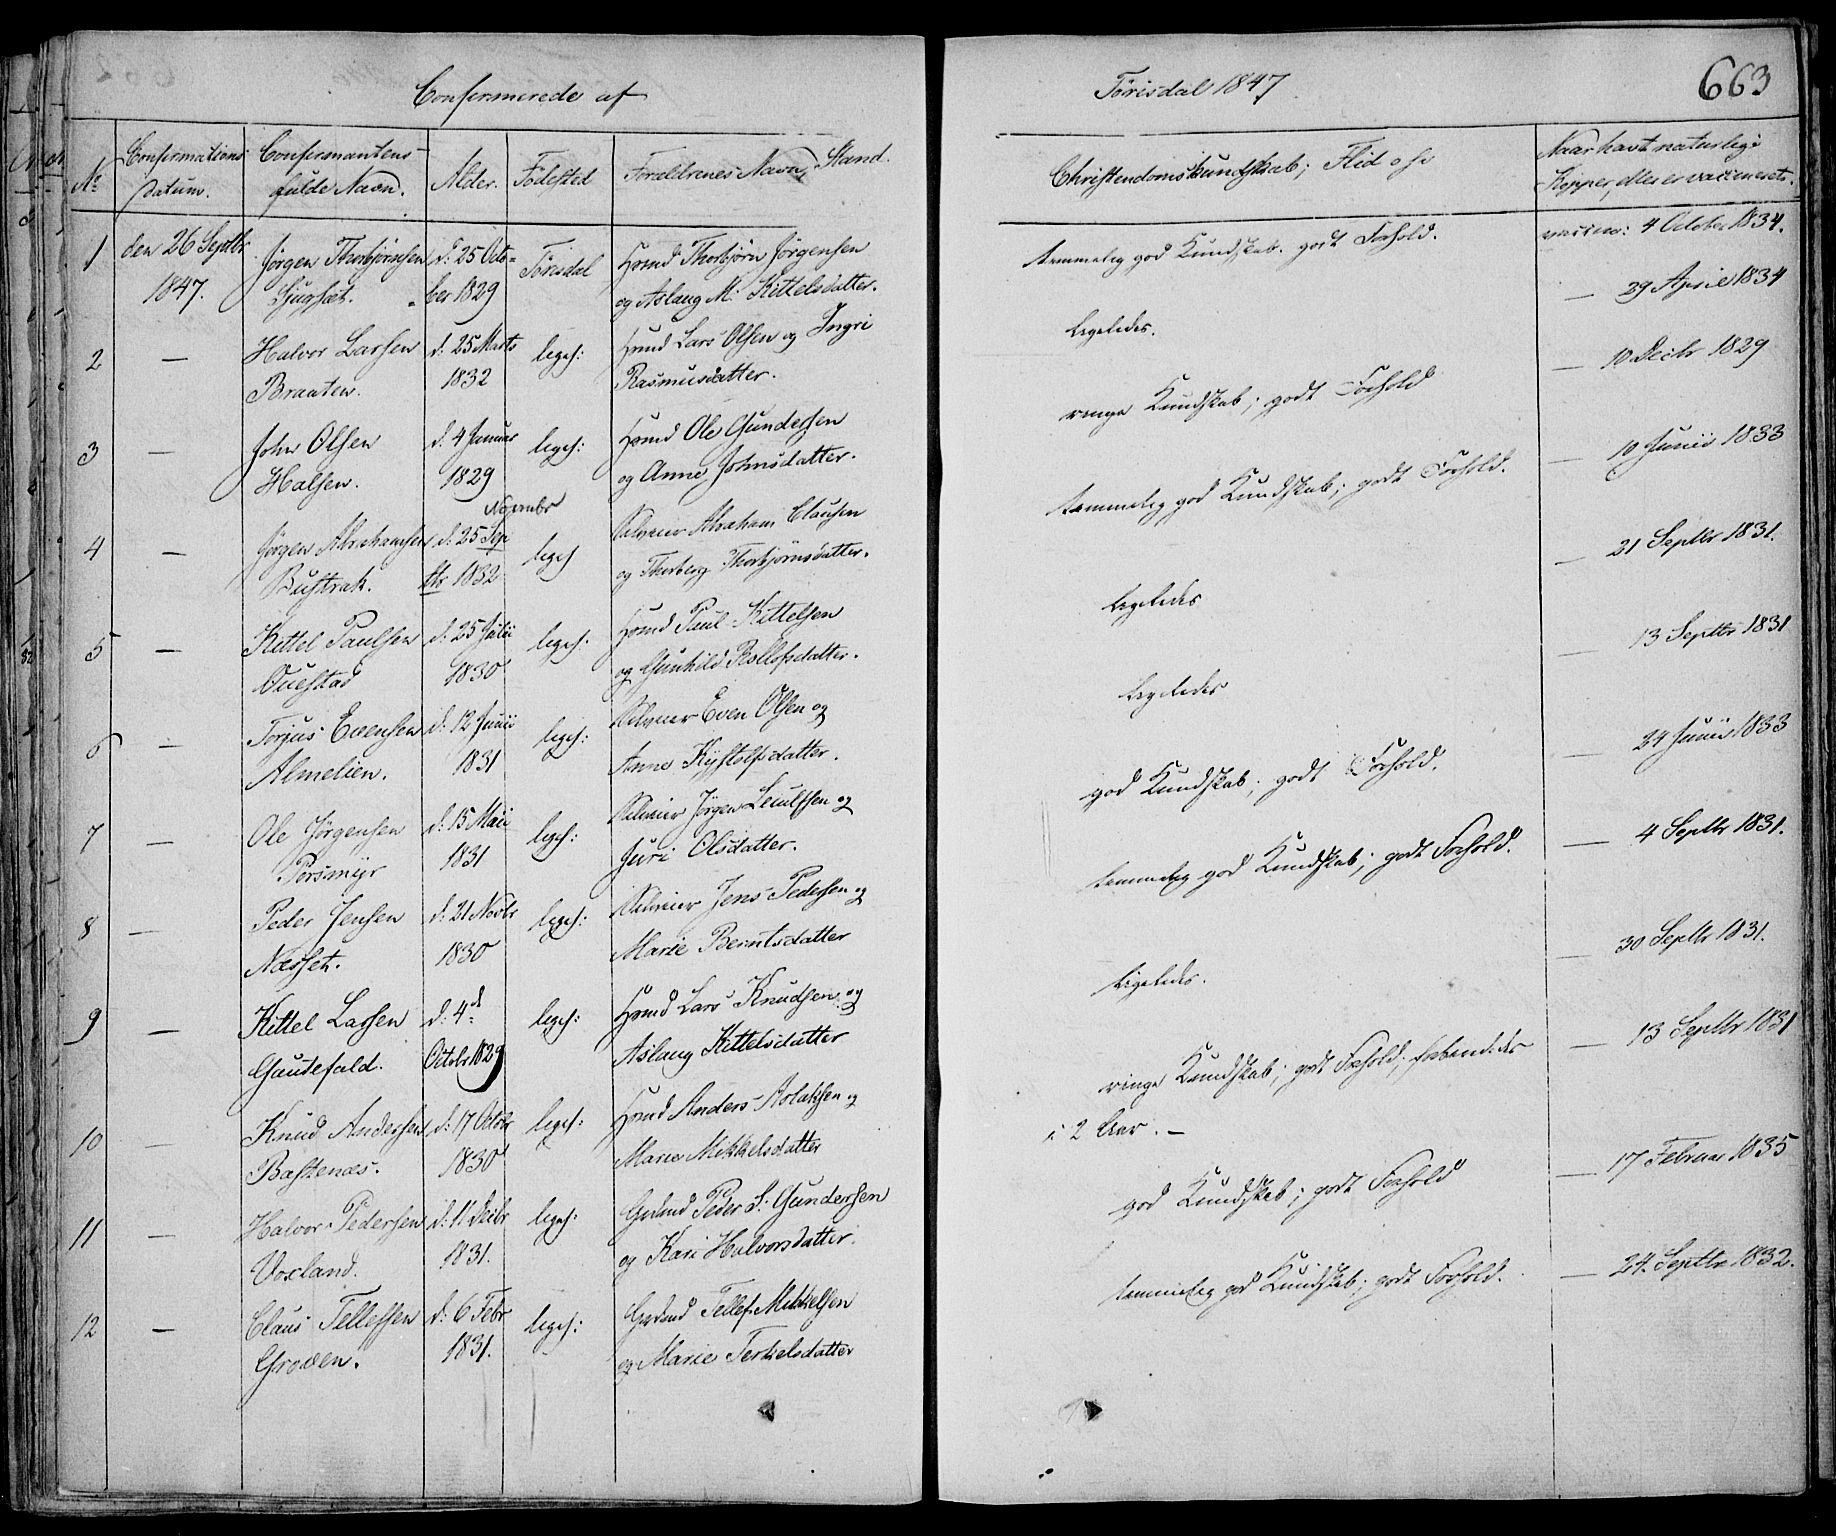 Confirmerede af
Tørisdal 1847
663
No
Confirmations
Datum.
Confirmantens
fulde Navn.
Alder.
Fødested
Forældrenes Navn, Stand.
Christendomskundskab; Flid
Naar havt naturlige
Kopper, eller er vaccineret.
1
den 26 Septbr
1847.
Jørgen Thorbjørnsen
d: 25 Octo-
ber 1829
Tørisdal
Thorbjørn Jørgensen
og Aslaug M. Kittelsdatter.
temmelig god Kundskab. godt Forhold.
4 October 1834.
2
—
Halvor Larsen
Braaten.
d. 25 Marts
1832
liges:
Lars Olsen og Ingri
Rasmusdatter.
ligeledes.
— 29 April 1834
3
—
John Olsen
Halsen.
d. 4 Januar
1829
liges:
Ole Gundersen
og Anne Johnsdatter.
ringe Kundskab; godt Forhold
— 10 Decbr 1829
4
—
Jørgen Abrahamsen
Bustrak.
November
d. 25 Sep
tbr 1832
liges
Abraham Clausen
og Thorberg Thorbjørnsdatter.
temmelig god Kundskab; godt Forhold.
— 10 Junii 1833
5
—
Kittel Paulsen
Ouestad
d. 25 Julii
1830
liges:
Paul Kittelsen
og Gunhild Rollofsdatter.
ligeledes
— 21 Septbr 1831.
6
—
Torjus Evensen
Almelien.
d. 12 Junii
1831
liges:
Even Olsen og
Anne Kystolfsdatter.
ligeledes
— 13 Septbr 1831
7
—
Ole Jørgensen
Porsmyr
d. 15 Maii
1831
liges:
Jørgen Leulfsen og
Juri Olsdatter.
god Kundskab; godt Forhold.
— 24 Junii 1833
8
—
Peder Jensen
Næsset.
d. 21 Novbr
1830
liges:
Jens Pedersen og
Marie Berntsdatter
temmelig god Kundskab; godt Forhold.
— 4 Septbr 1831.
9
—
Kittel Larsen
Gautefald.
d. 4d
Octobr 1829
liges:
Lars Knudsen og
Aslaug Kittelsdatter
ligeledes.
— 30 Septbr 1831.
10
—
Knud Andersen
Bastenæs.
d: 17 Octobr
1830
liges:
Anders Aslaksen og
Maren Mikkelsdatter
ringe Kundskab; godt Forhold;
i 2 Aar. —
— 13 Septbr 1831
11
—
Halvor Pedersen
Voxland.
d. 11 Decbr
1831.
liges:
Peder S. Gundersen
og Kari Halvorsdatter.
god Kundskab; godt Forhold
— 17 Februar 1835
12
—
Claus Tellefsen
Groven.
d. 6 Febr
1831.
liges:
Tellef Mikkelsen
og Marie Terkelsdatter
temmelig god Kundskab; godt Forhold.
— 24. Septbr 1832.